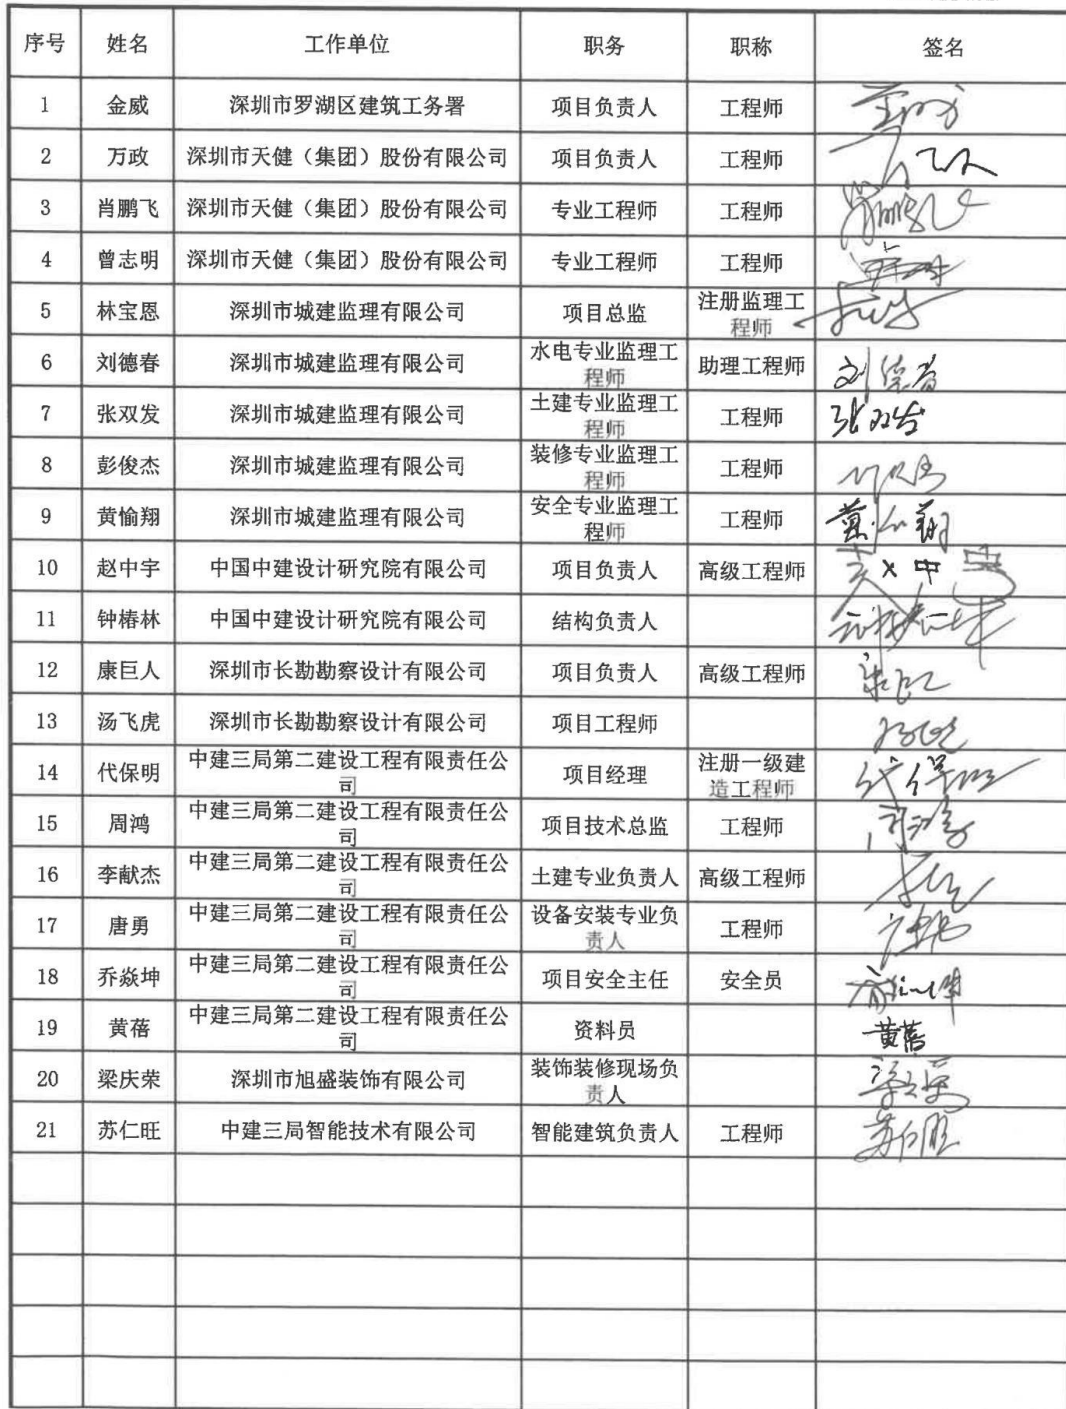 序号 姓名 工作单位 职务 职称 签名
1 金威 深圳市罗湖区建筑工务署 项目负责人 工程师
2 万政 深圳市天健（集团）股份有限公司 项目负责人 工程师
3 肖鹏飞 深圳市天健（集团）股份有限公司 专业工程师 工程师
4 曾志明 深圳市天健（集团）股份有限公司 专业工程师 工程师
5 林宝恩 深圳市城建监理有限公司 项目总监 注册监理工
程师
6 刘德春 深圳市城建监理有限公司 水电专业监理工 助理工程师 刘德春
程师
7 张双发 深圳市城建监理有限公司 土建专业监理工 工程师 张双发
程师
8 彭俊杰 深圳市城建监理有限公司 装修专业监理工 工程师
程师
9 黄愉翔 深圳市城建监理有限公司 安全专业监理工 工程师 黄愉翔
程师
10 赵中宇 中国中建设计研究院有限公司 项目负责人 高级工程师
11 钟椿林 中国中建设计研究院有限公司 结构负责人
12 康巨人 深圳市长勘勘察设计有限公司 项目负责人 高级工程师
13 汤飞虎 深圳市长勘勘察设计有限公司 项目工程师
14 代保明 中建三局第二建设工程有限责任公 项目经理 注册一级建
司 造工程师
15 周鸿 中建三局第二建设工程有限责任公 项目技术总监 工程师
司
16 李献杰 中建三局第二建设工程有限责任公 土建专业负责人 高级工程师
司
17 唐勇 中建三局第二建设工程有限责任公 设备安装专业负 工程师
司 责人
18 乔焱坤 中建三局第二建设工程有限责任公 项目安全主任 安全员
司
19 黄蓓 中建三局第二建设工程有限责任公 资料员 黄蓓
司
20 梁庆荣 深圳市旭盛装饰有限公司 装饰装修现场负
责人
21 苏仁旺 中建三局智能技术有限公司 智能建筑负责人 工程师 苏仁旺